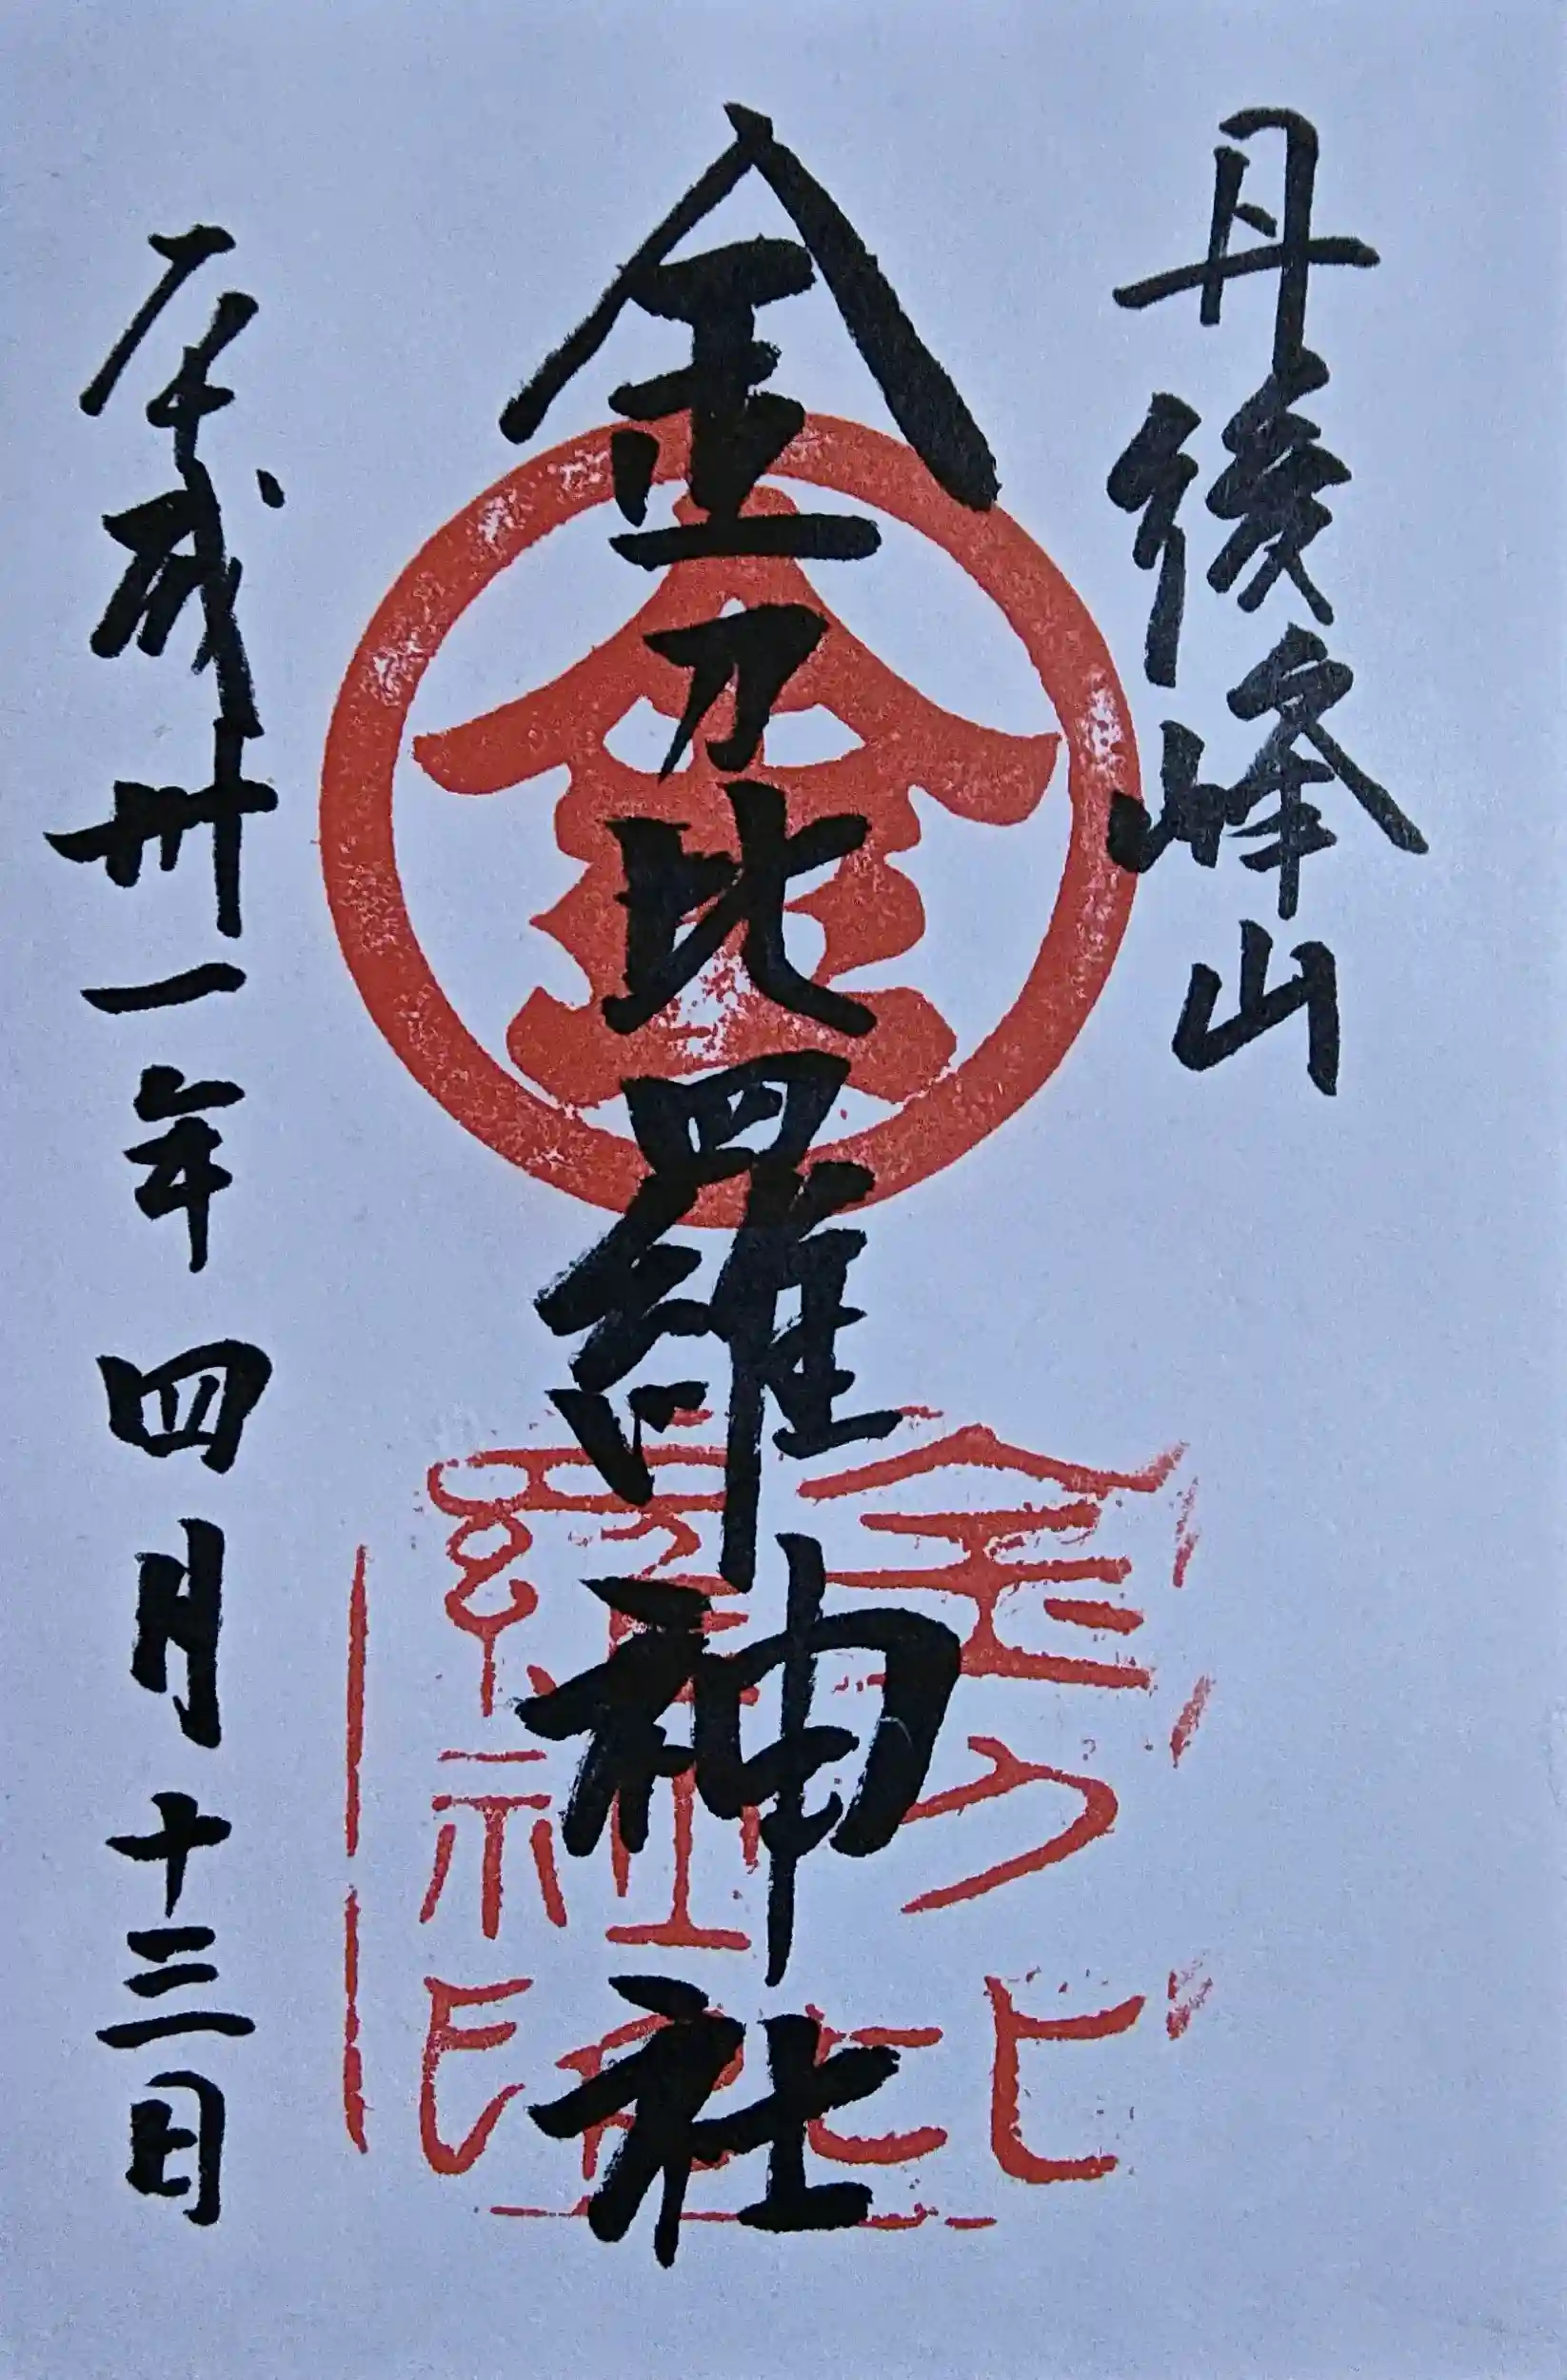 丹後峰山
金刀比羅神社
平成卅一年四月十三日
金
金刀比
羅社印